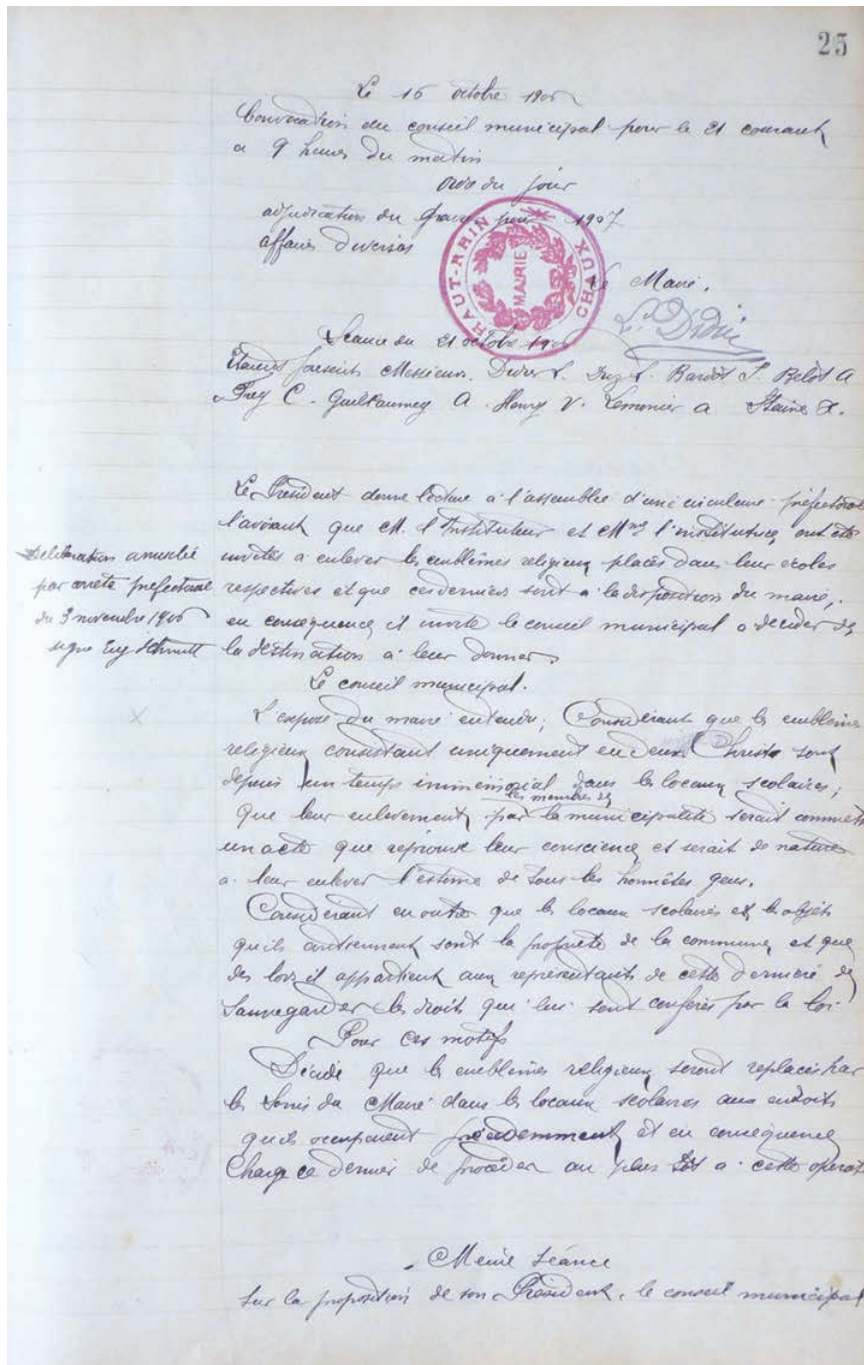 25
Le 16 octobre 1906
Convocation du conseil municipal pour le 21 courant
a 9 heures du matin
ordre du jour
adjudication du pour 1907
affaires diverses
HAUT-RHIN
MAIRIE
CHAUX
Le Maire.
L. Didier
Séance du 21 octobre 1906
Etaient présents Messieurs. Didier L. L. Bardot J. Belot A
Frey C. Guillaumey A. Henry V. Lemonier a Steine X.
Le Président donne lecture a l'assemblée d'une circulaire préfectorale
l'avisant que M. l'Instituteur et Mme l'institutrice, ont été
invités a enlever les emblèmes religieux placés dans leur écoles
respectives et que ces derniers sont a la disposition du maire,
en conséquence il invite le conseil municipal a décider de
la destination a leur donner.
Déliberation annulée
par arrêté préfectoral
du 3 novembre 1906
signé Eug Schmitt
Le conseil municipal.
L'exposé du maire entendu; Considérant que les emblèmes
religieux consistant uniquement en deux Christs sont
depuis un temps immémorial dans les locaux scolaires;
les membres de
que leur enlevement par la municipalité serait commettre
un acte que réprouve leur conscience et serait de nature
a leur enlever l'estime de tous les honnêtes gens.
Considérant en outre que les locaux scolaires et les objets
qu'ils contiennent sont la propriété de la commune, et que
des lors il appartient aux représentants de cette derniere de
Sauvegarder les droits qui lui sont conférés par la loi.
Pour ces motifs
Décide que les emblèmes religieux seront replacés par
les soins du Maire dans les locaux scolaires aux endroits
qu'ils occupaient précedemment et en conséquence
Charge ce dernier de procéder au plus tôt a cette operat
Meme séance
Sur la proposition de son Président, le conseil municipal